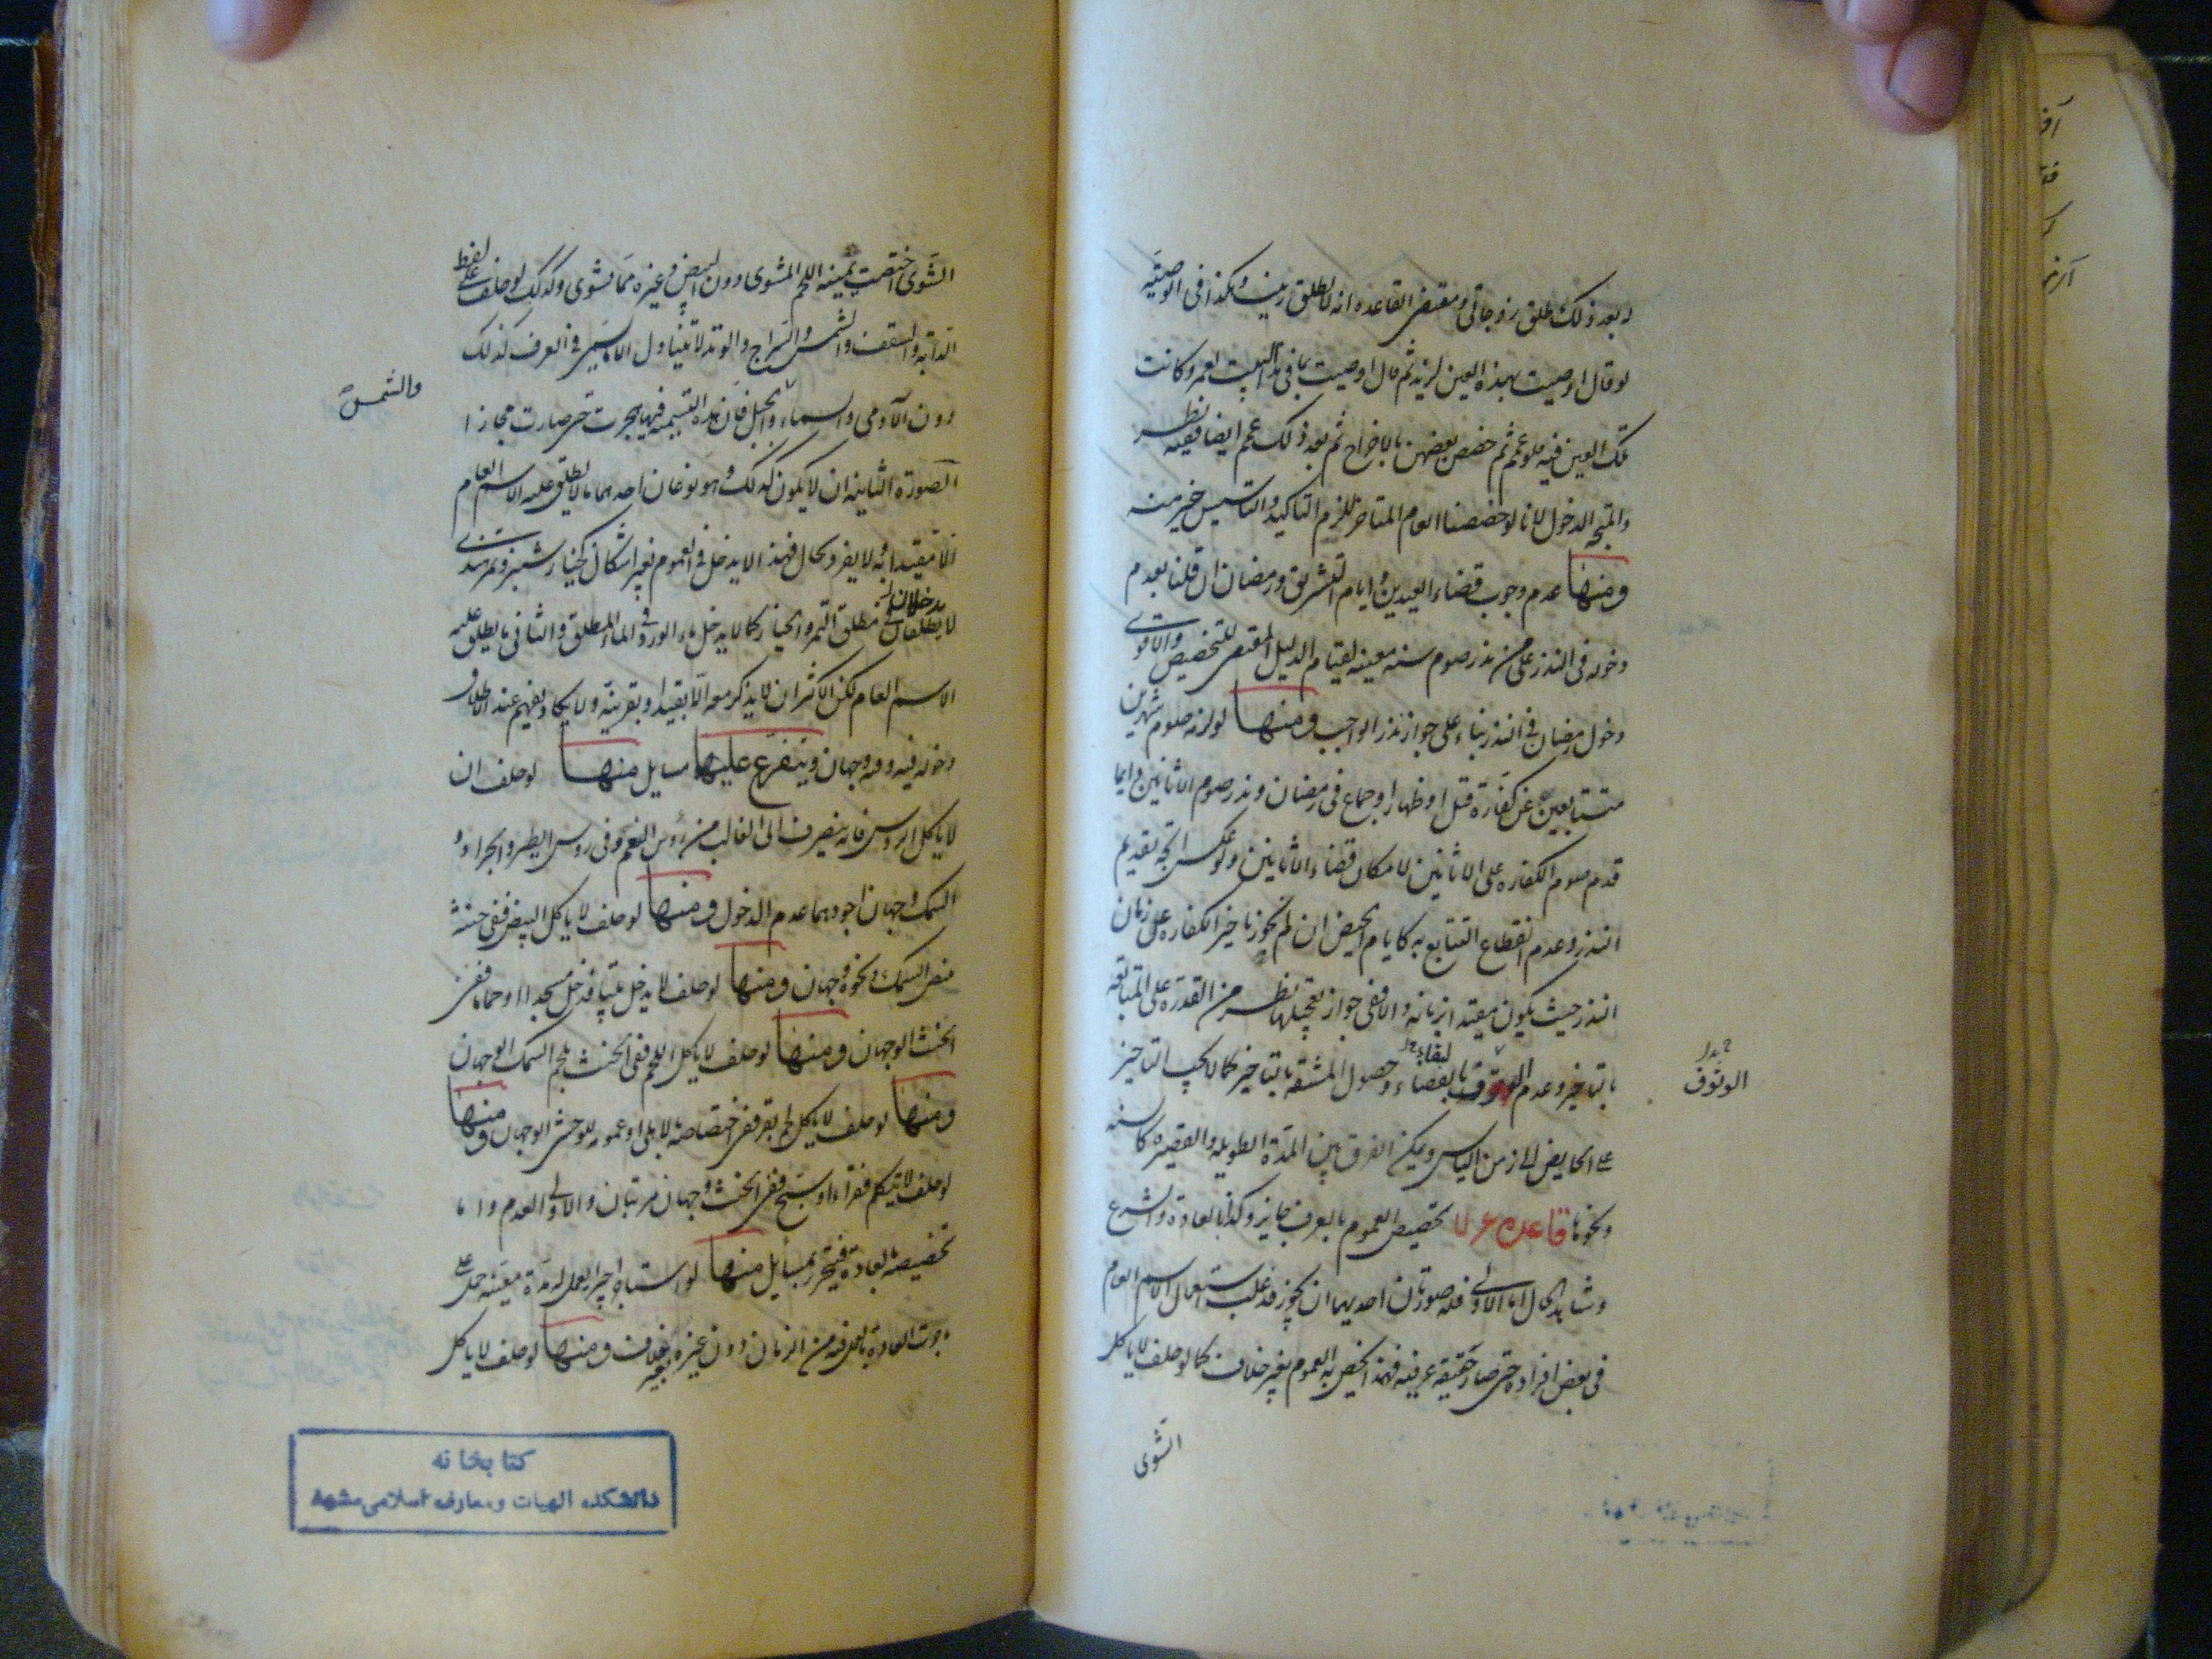 له بعد ذلك طلق زوجاتي ومقتضى القاعده انه لا يطلق زينب وهكذا في الوصيّه
لو قال اوصيت بهذه العين لزيد ثم قال اوصيت بما في هذا البيت لعمرو وكانت
تلك العين فيه فلو عمم ثم خصص بعضهن بالاخراج ثم بعد ذلك عمم ايضا ففيه نظر
والمتجه الدخول لانا لو خصصنا العام المتاخر للزم التاكيد والتاسيس خير منه
ومنها عدم وجوب قضاء العيدين وايام التشريق ورمضان ان قلنا بعدم
دخوله في النذر على من نذر صوم سنه معينه لقيام الدليل المقتضى للتخصيص والاقوى
دخول رمضان في النذر بناء على جواز نذر الواجب ومنها لو لزمه صوم شهرين
متتابعين عن كفارة قتل او ظهار او جماع في رمضان ونذر صوم الاثانين دايما
قدم صوم الكفاره على الاثانين لامكان قضاء الاثانين ولو عكس اتجه تقديم
النذر وعدم انقطاع التتابع به كايام الحيض ان لم نجوز تاخير الكفاره على زمان
النذر حيث يكون مقيدا بزمانه والا ففي جواز تعجيلها نظر من القدرة على المتابعه
بالتاخير وعدم الوثوق بالبقاء وحصول المشقه بالتاخير كما لا يجب التاخير
الوثوق
على الحايض الى زمن الياس ويمكن الفرق بين المدة الطويله والقصيره كالسنه
ونحوها قاعده تخصيص العموم بالعرف جايز وكذا بالعادة والشرع
وشاهد الحال اما الاولى فله صورتان احديهما ان يكون قد غلب استعمال الاسم العام
في بعض افراده حتى صار حقيقة عرفيه فهذا يخص به العموم بغير خلاف كما لو حلف لا ياكل
الشوى
الشوى اختصت يمينه اللحم المشوى دون البيض وغيره مما يشوى وكذلك لو حلف على لفظ
الدابه والسقف والشمس والسراج والوتد لا يتناول الا ما يسمى في العرف كذلك
دون الآدمي والسماء والجبل فان هذه التسميه فيها هجرت حتى صارت مجازا
والشمس
الصورة الثانيه ان لا يكون كذلك وهو نوعان احدهما ما لا يطلق عليه الاسم العام
الا مقيدا به ولا يفرد بحال فهذا لا يدخل في العموم بغير اشكال كخيار شنبر وتمر هندى
لا يدخلان في مطلق التمر والخيار كما لا يدخل ماء الورد في الماء المطلق والثاني ما يطلق عليه
الاسم العام لكن الاكثر ان لا يذكر معه الا بقيد او بقرينة ولا يكاد يفهم عند الاطلاق
دخوله فيه وفيه وجهان ويتفرع عليها مسايل منها لو حلف ان
لا ياكل الروس فانه ينصرف الى الغالب من رؤس النعم وفي روس الطير والجراد و
السمك وجهان اجودهما عدم الدخول ومنها لو حلف لا ياكل البيض ففي حنثه
ببيض السمك ونحوه وجهان ومنها لو حلف لا يدخل بيتا فدخل مسجدا او حماما ففي
الحنث الوجهان ومنها لو حلف لا ياكل اللحم ففي الحنث بلحم السمك الوجهان
ومنها لو حلف لا ياكل لحم بقر ففي اختصاصه بالاهلى او عمومه للوحشى الوجهان ومنها
لو حلف لا يتكلم فقرا او سبح ففي الحنث وجهان مرتبان والاولى العدم واما
تخصيصه بالعادة فيتحرر بمسايل منها لو استاجر اجيرا يعمل له مدة معينه حمل على
ما جرت العادة بالعمل فيه من الزمان دون غيره بغير خلاف ومنها لو حلف لا ياكل
كتابخانه
دانشكده الهيات و معارف اسلامى مشهد